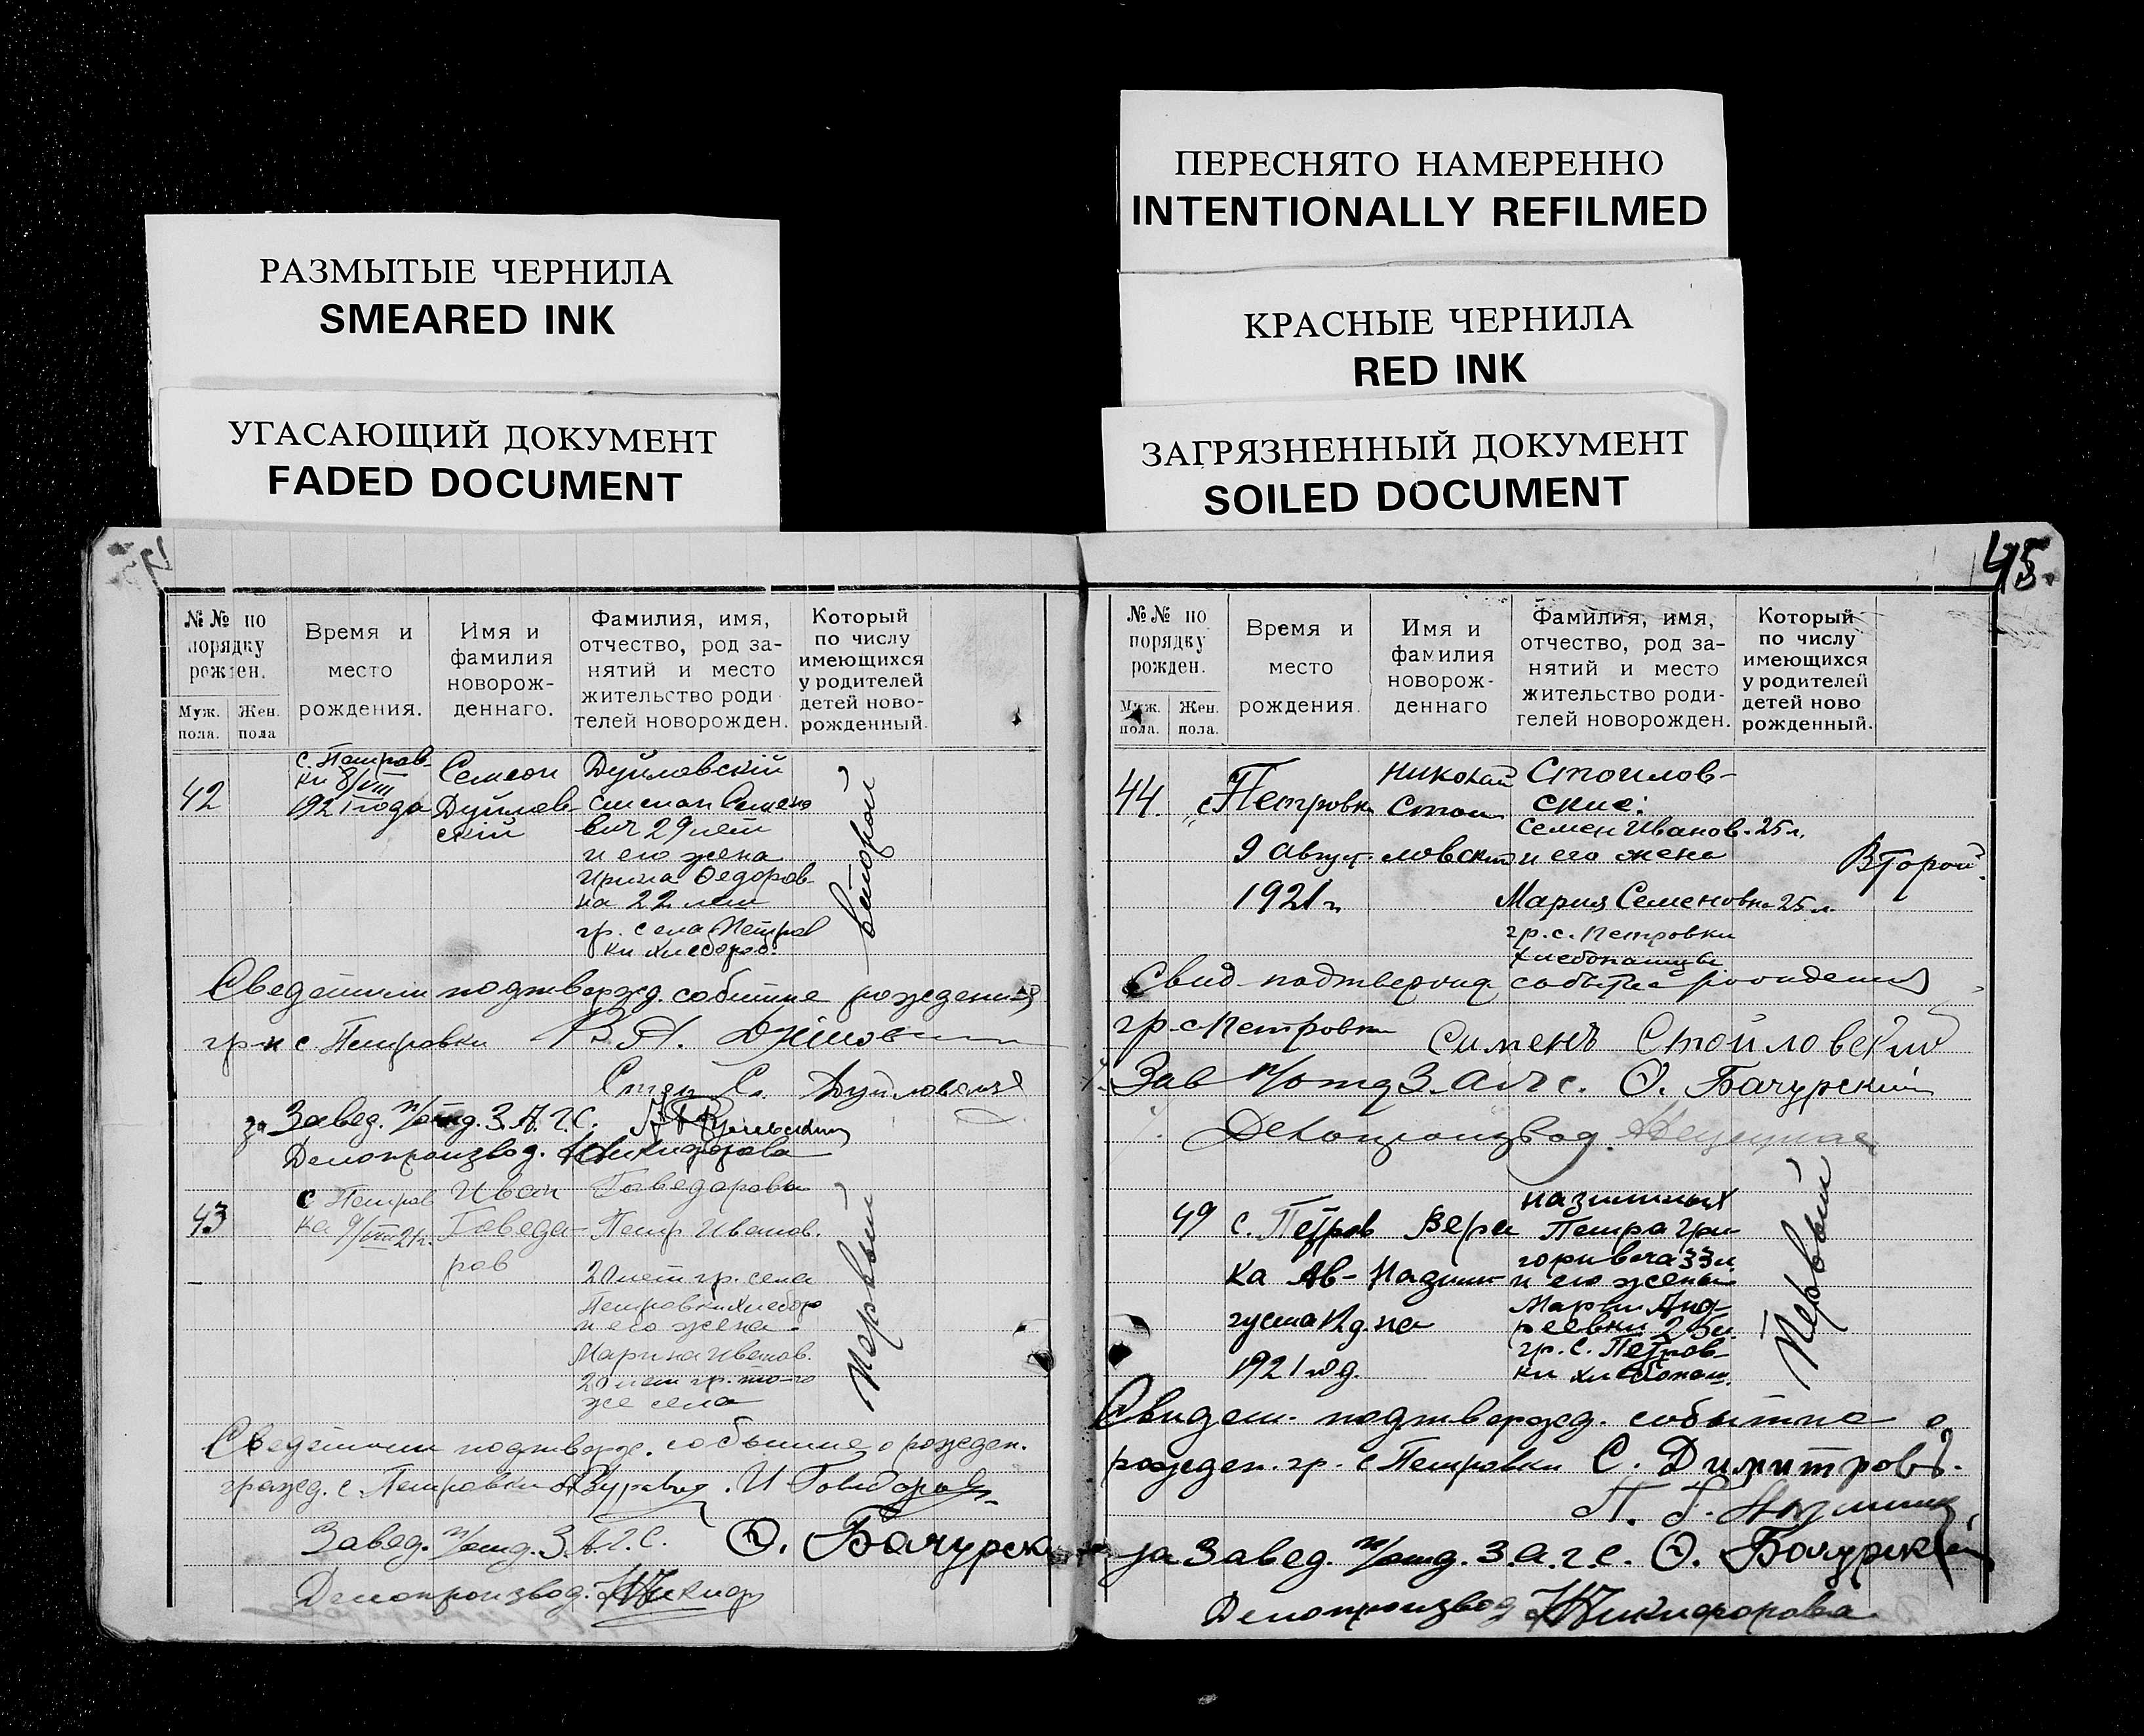 РАЗМЫТЫЕ ЧЕРНИЛА
SMEARED INK
УГАСАЮЩИЙ ДОКУМЕНТ
FADED DOCUMENT
ПЕРЕСНЯТО НАМЕРЕННО
INTENTIONALLY REFILMED
КРАСНЫЕ ЧЕРНИЛА
RED INK
ЗАГРЯЗНЕННЫЙ ДОКУМЕНТ
SOILED DOCUMENT
№№ по порядку рожден.
Муж. пола.
Жен. пола
Время и место рождения.
Имя и фамилия новорож-
деннаго.
Фамилия, имя,
отчество, род за-
нятий и место
жительство роди
телей новорожден.
Который
по числу
имеющихся
у родителей
детей ново-
рожденный.
42
с. Петров-
ки 8/VIII
1921 года
Семен
Дуйлов-
скій
Дуйловскій
Степан Семено
вич 29 лет
и его жена
Ирина Федоров-
на 22 лет
гр. села Петров
ки хлебороб.
второй
Сведетили подтвержд. событие рождения
гр-н с. Петровки
за Завед. п/отд. З.А.Г.С.
Делопроизвод. Никифорова
43
с Петров
ка 9/VIII 21 г.
Иван
Говеда-
ров
Говедарова
Петр Иванов.
20 лет гр. села
Петровки хлебор
и его жена
Марина Иванов.
20 лет гр. то-го
же села
Первый
Сведетили подтверж. событие о рожден.
гражд. с. Петровки
Завед. п/отд. З.А.Г.С. О. Бачурски
Делопроизвод. Никиф
45.
№№ по
порядку
рожден.
Муж. пола.
Жен. пола.
Время и
место
рождения.
Имя и
фамилия
новорож-
деннаго
Фамилия, имя,
отчество, род за-
нятий и место
жительство роди-
телей новорожден.
Который
по числу
имеющихся
у родителей
детей ново
рожденный.
44.
с Петровка
9 август.
1921 г.
Николай
Стои
ловский
Стоилов-
ские:
Семен Иванов. 25 л.
и его жена
Мария Семеновна 25 л.
гр. с. Петровки
хлебопашцы
Второй
Свид подтвержд событие рождения
гр. с. Петровки Сименъ Стоиловский
Зав п/отд З.А.Г.С. О. Бачурский
Делопроизвод.
49
с. Петров
ка Ав-
густа 12 д.
1921 год
Вера
Назими-
на
Назиминых
Петра Гри
горивича 33 л.
и его жены
Марии Анд-
реевки 25 л.
гр. с. Петров-
ки хлебопаш.
Первый
Свидет. подтвержд. событие о
рожден. гр. с Петровки С. Димитровъ.
за Завед. п/отд. З.А.Г.С. О. Бачурский
Делопроизвод Никифорова